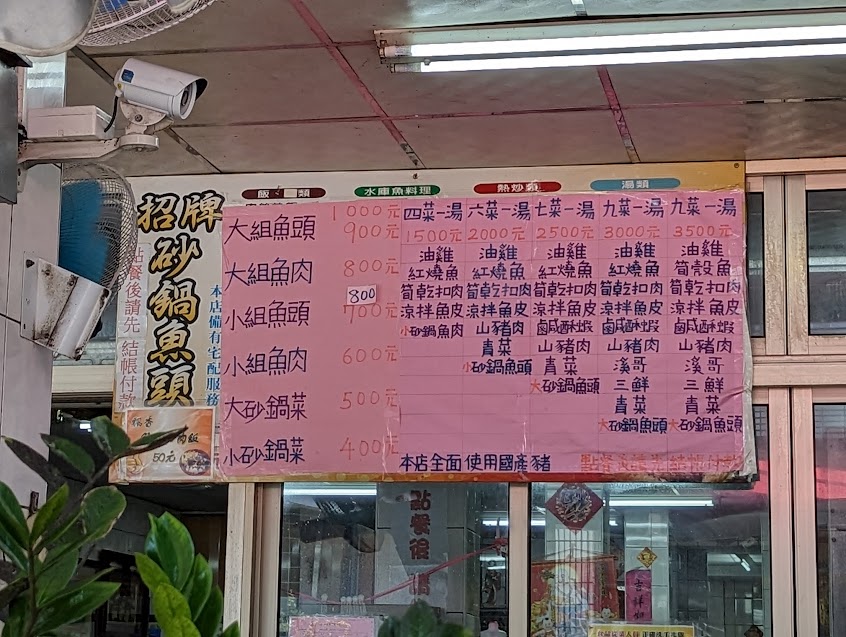 招牌
砂鍋魚頭
點餐後請先 結帳付款
本店備有宅配服務
飯 類
水庫魚料理
熱炒類
湯類
1000元
大組魚頭 900元
大組魚肉 800元
800
小組魚頭 700元
小組魚肉 600元
大砂鍋菜 500元
小砂鍋菜 400元
四菜一湯 六菜一湯 七菜一湯 九菜一湯 九菜一湯
1500元 2000元 2500元 3000元 3500元
油雞 油雞 油雞 油雞 油雞
紅燒魚 紅燒魚 紅燒魚 紅燒魚 筍殼魚
筍乾扣肉 筍乾扣肉 筍乾扣肉 筍乾扣肉 筍乾扣肉
涼拌魚皮 涼拌魚皮 涼拌魚皮 涼拌魚皮 涼拌魚皮
小砂鍋魚肉 山豬肉 鹹酥蝦 鹹酥蝦 鹹酥蝦
青菜 山豬肉 山豬肉 山豬肉
小砂鍋魚頭 青菜 溪哥 溪哥
大砂鍋魚頭 三鮮 三鮮
青菜 青菜
大砂鍋魚頭 大砂鍋魚頭
本店全面使用國產豬 點餐後請先結帳付款
稻香
肉飯
50元
點餐後請
吉祥